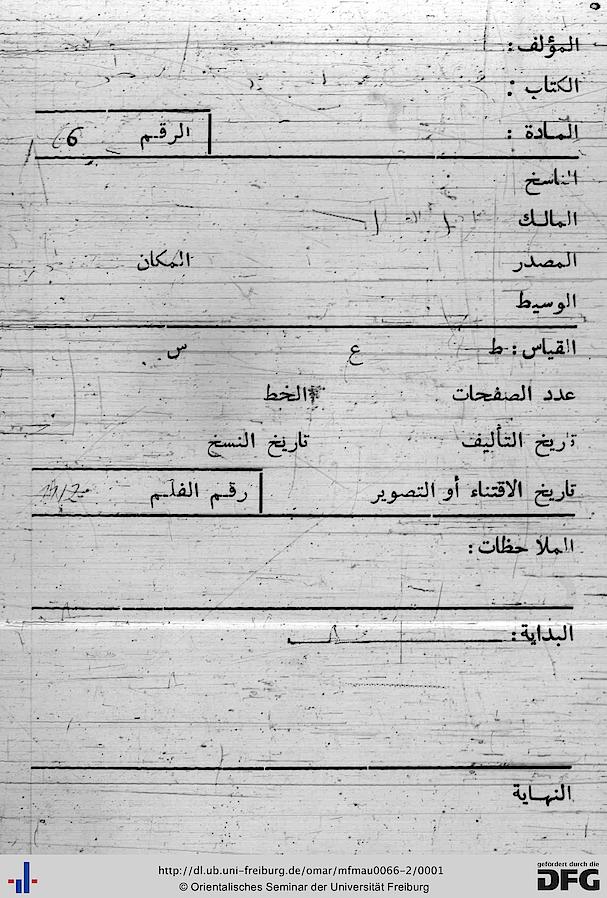 المؤلف :
الكتاب :
المادة :
الرقم 6
الناسخ
المالك
المصدر المكان
الوسيط
القياس : ط ع س
عدد الصفحات الخط
تاريخ التأليف تاريخ النسخ
تاريخ الاقتناء أو التصوير رقم الفلم
الملاحظات :
البداية :
النهاية
http://dl.ub.uni-freiburg.de/omar/mfmau0066-2/0001
© Orientalisches Seminar der Universität Freiburg
gefördert durch die
DFG